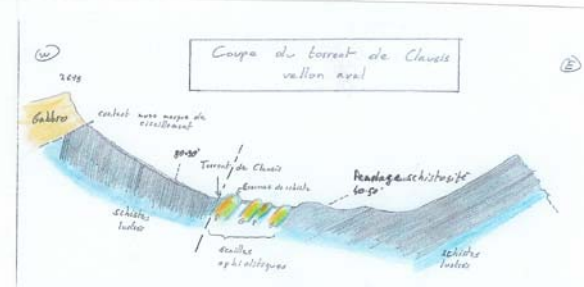 W
Coupe du torrent de Clausis
vallon aval
E
Gabbros
contact avec marque de
cisaillement
80-90°
Torrent de Clausis
Pendage schistosité
40-50°
schistes
lustrés
écailles
ophiolitiques
schistes
lustrés